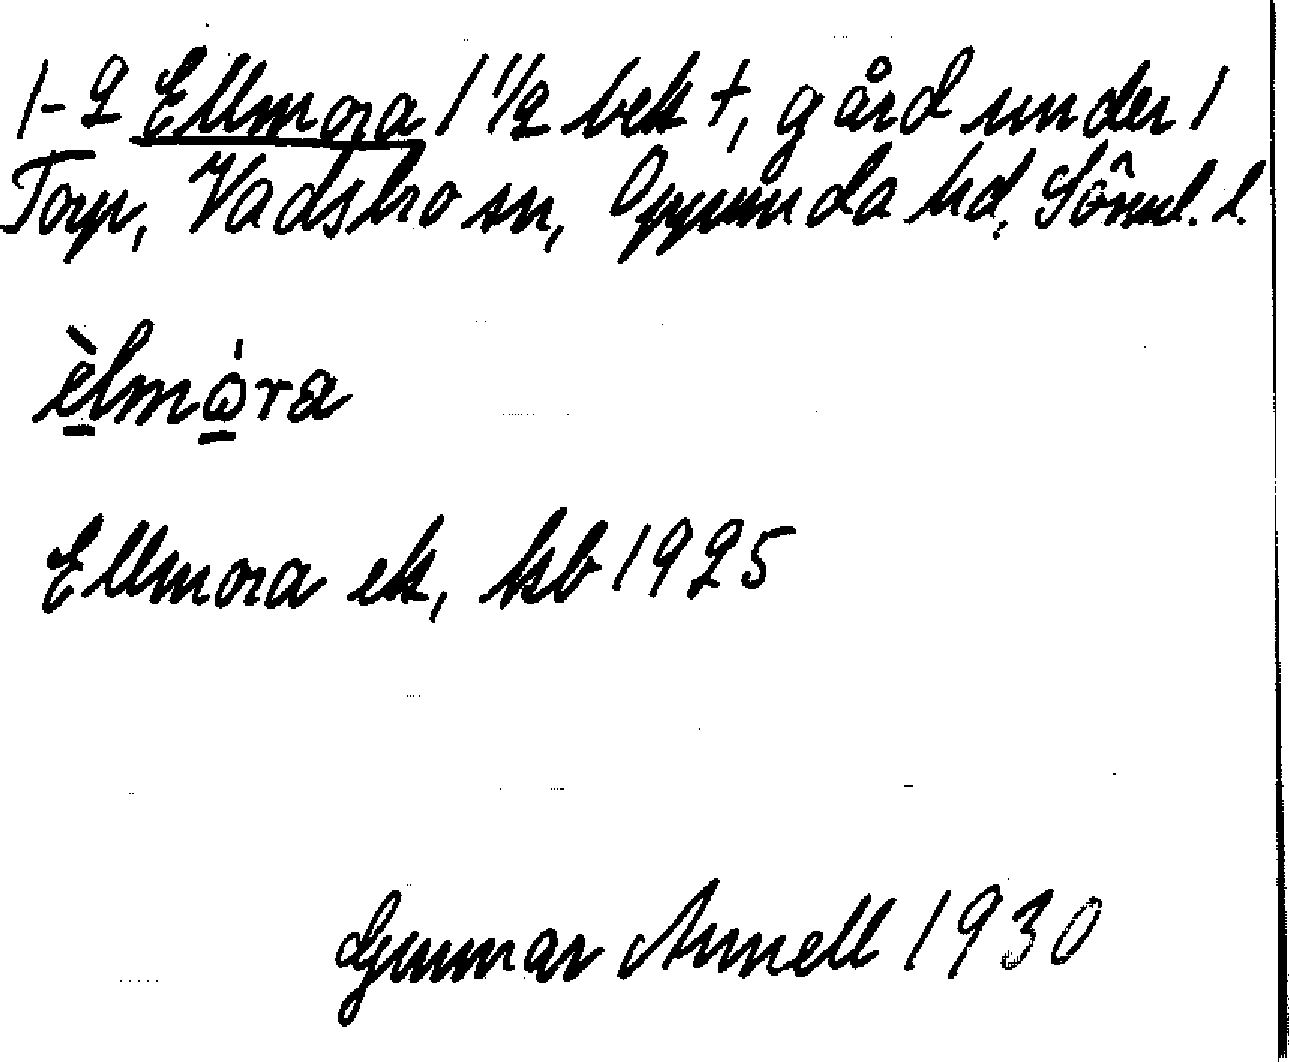 1-2 Ellmora 1 1/2 bek +, gård under 1
Torp, Vadsbro sn, Oppunda hd, Söml. l.
èlmo̱ra
Ellmora ek, kb 1925
Gunnar Arnell 1930